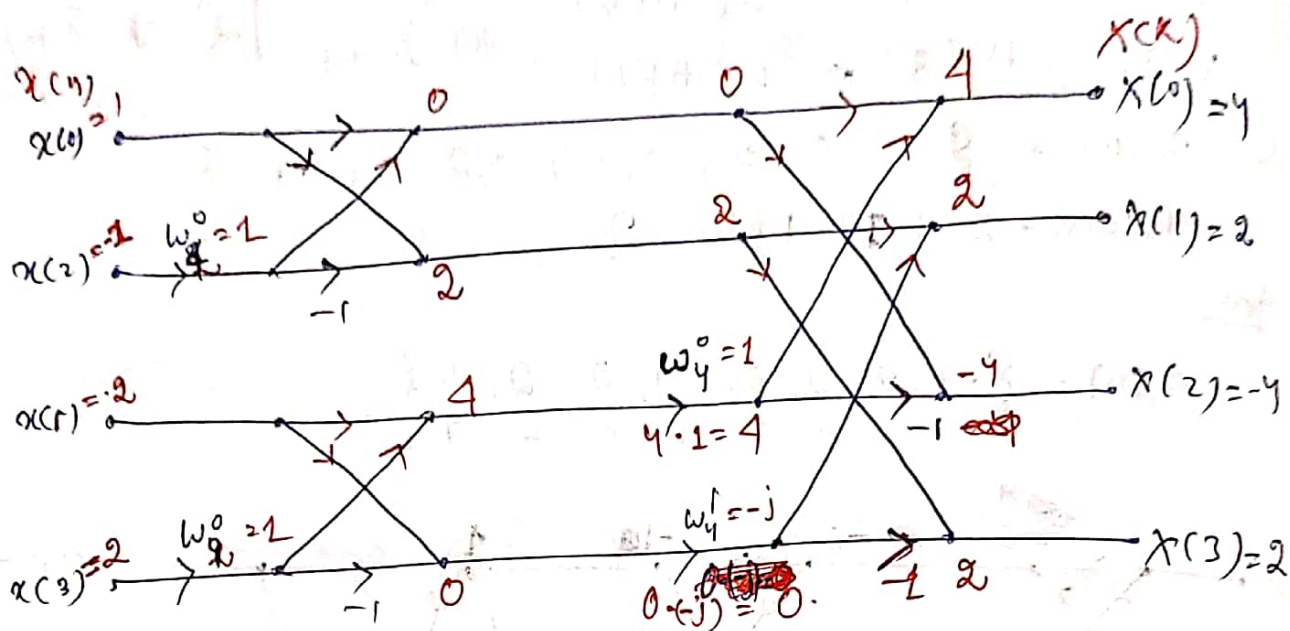 X(K)
x(n)
x(0) = 1
0
0
4
X(0) = 4
x(2) = -1
W⁰ = 1
-1
2
2
2
X(1) = 2
x(1) = 2
4
W₄⁰ = 1
4 · 1 = 4
-1
-4
X(2) = -4
x(3) = 2
W⁰ = 1
-1
0
W₄¹ = -j
0 · (-j) = 0
-1
2
X(3) = 2